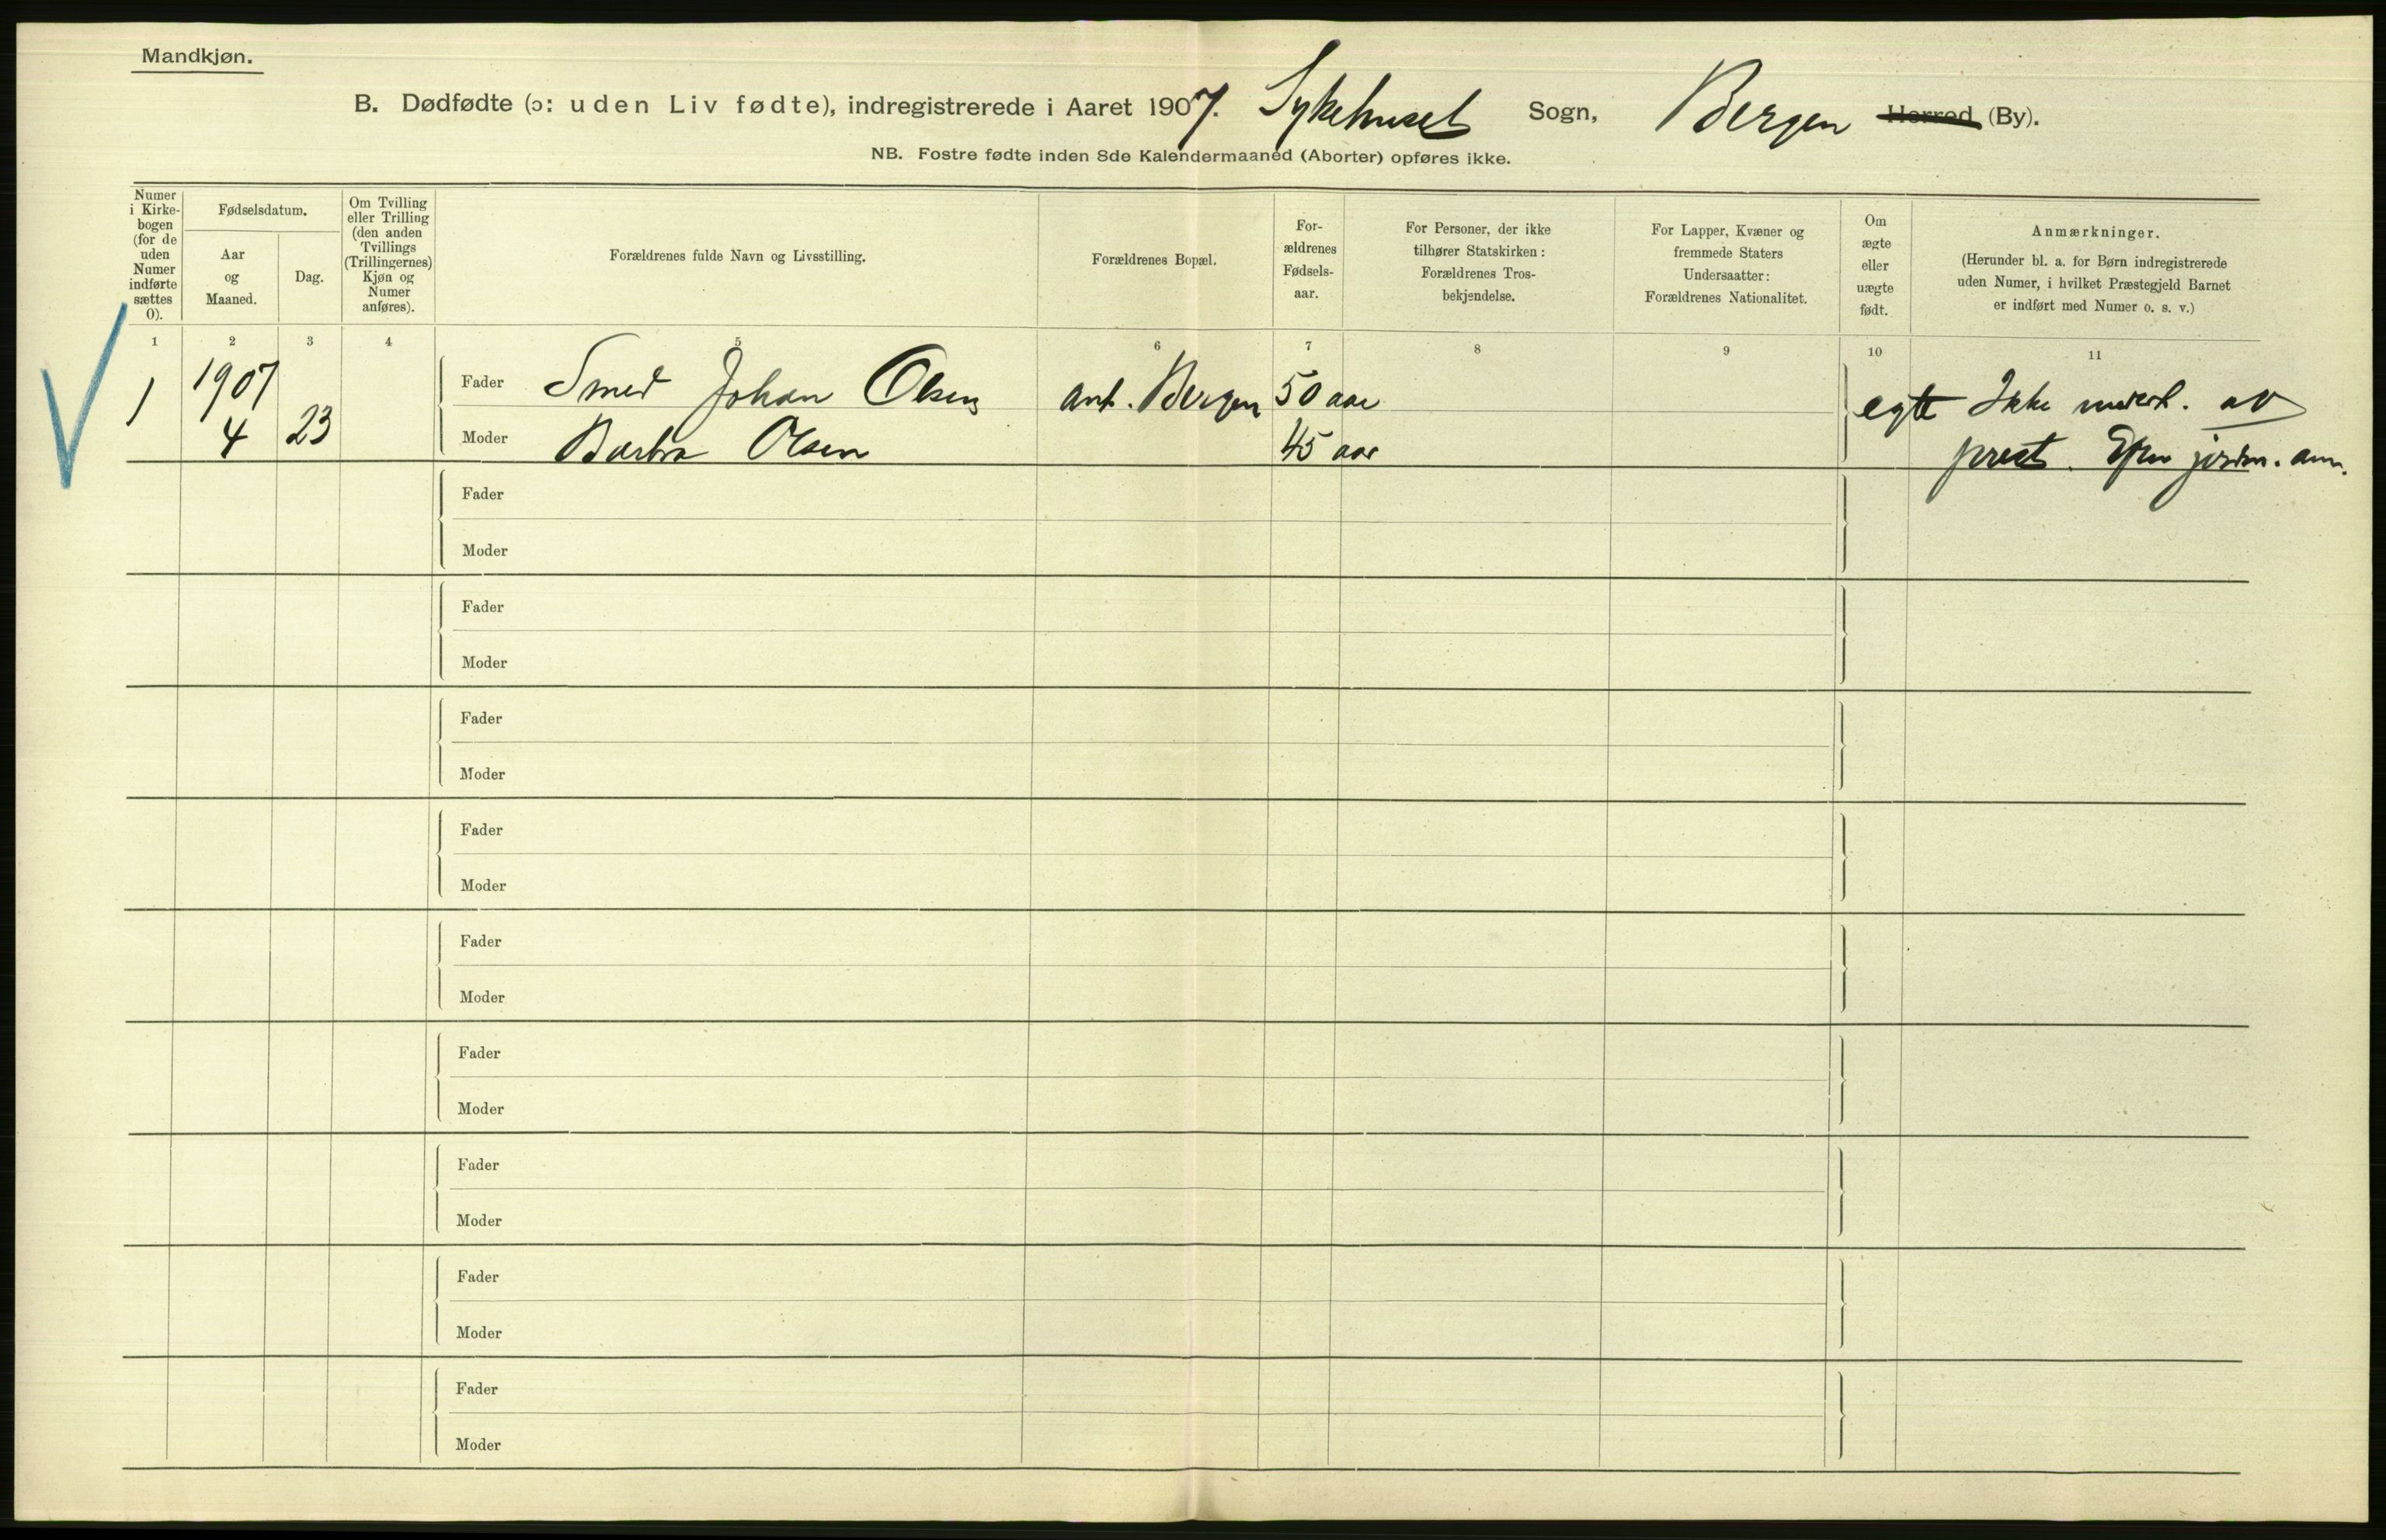 Mandkjøn.
B. Dødfødte (ɔ: uden Liv fødte), indregistrerede i Aaret 1907. Sykehuset Sogn, Bergen Herred (By).
NB. Fostre fødte inden 8de Kalendermaaned (Aborter) opføres ikke.
Numer
i Kirke-
bogen
(for de
uden
Numer
indførte
sættes
0).
Fødselsdatum.
Aar
og
Maaned.
Dag.
Om Tvilling
eller Trilling
(den anden
Tvillings
(Trillingernes)
Kjøn og
Numer
anføres).
Forældrenes fulde Navn og Livsstilling.
Forældrenes Bopæl.
For-
ældrenes
Fødsels-
aar.
For Personer, der ikke
tilhører Statskirken:
Forældrenes Tros-
bekjendelse.
For Lapper, Kvæner og
fremmede Staters
Undersaatter:
Forældrenes Nationalitet.
Om
ægte
eller
uægte
født.
Anmærkninger.
(Herunder bl. a. for Børn indregistrerede
uden Numer, i hvilket Præstegjeld Barnet
er indført med Numer o. s. v.)
1 2 3 4 5 6 7 8 9 10 11
1 1907 Fader Smed Johan Olsen Bergen 50 aar egte Ikke av
4 23 Moder Barbra Olsen 45 aar prest.
Fader
Moder
Fader
Moder
Fader
Moder
Fader
Moder
Fader
Moder
Fader
Moder
Fader
Moder
Fader
Moder
Fader
Moder